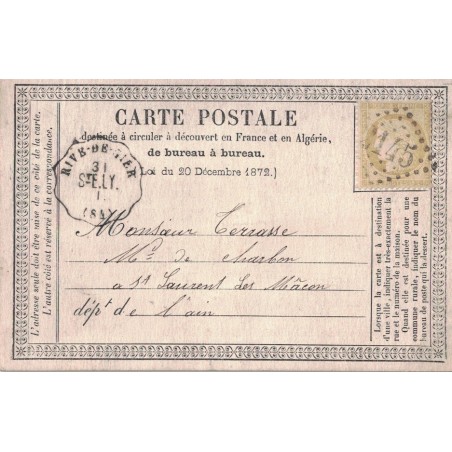 CARTE POSTALE
destinée à circuler à découvert en France et en Algérie,
de bureau à bureau.
(Loi du 20 Décembre 1872.)
RIVE-DE-GIER
31
ST E.LY.
1
(84)
145
Monsieur Terrasse
Md. de charbon
a St Laurent Les Mâcon
dépt de l'ain
L'adresse seule doit être mise de ce côté de la carte.
L'autre côté est réservé à la correspondance.
Lorsque la carte est à destination
d'une ville, indiquer très-exactement la
rue et le numéro de la maison.
Quand elle est destinée pour une
commune rurale, indiquer le nom du
bureau de poste qui la dessert.